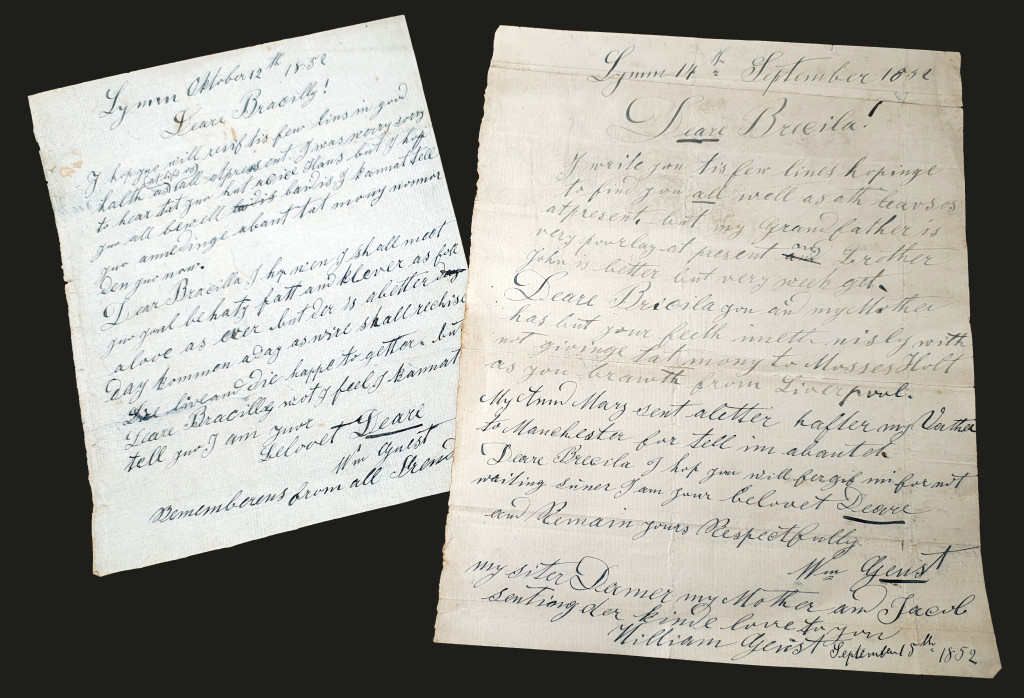 Lymm Oktober 12th 1852
Deare Bracilly!
I hop yuo will resif tis few lins in good
halth and all atpresent. I was werry sorry
to hear tat yuo hat a ice Hans but I hop
yuo all be well to dis band is I kannat tell
yuo annedinge abaut tat mony nomor
den yuo now.
Dear Bracilla I hop wen I shall meet
yuo youl be haty fatt and klever as full
alove as ever but der is abetter day
day kommen aday as wire shall rechise
Live and die happe to getter. but
Deare Bracilly wot I feel I kannat
tell yuo I am yuor
belovet Deare
Wm Guest
Rememberens from all Frend
Lymm 14th September 1852
Deare Brecila!
I write you tis few lines hopinge
to find you all well as ath leavs os
atpresent. but my Grandfather is
very poorlay at present and Brother
John is better but very week get.
Deare Bricila you and my Mother
has but your feeth inett nisly with
not givinge tat mony to Mosses Holt
as you brawth from Liverpool.
My Aunn Mary sent aletter hafter my Vather
to Manchester for tell im abautet
Deare Brecila I hop you will fergif mi for not
waiting suner I am your belovet Deare
and Remain yours Respectfully
Wm Geust
my siter Deemer my Mother an Jacob
sentiong der kinde love to you
William Geust September 15th 1852